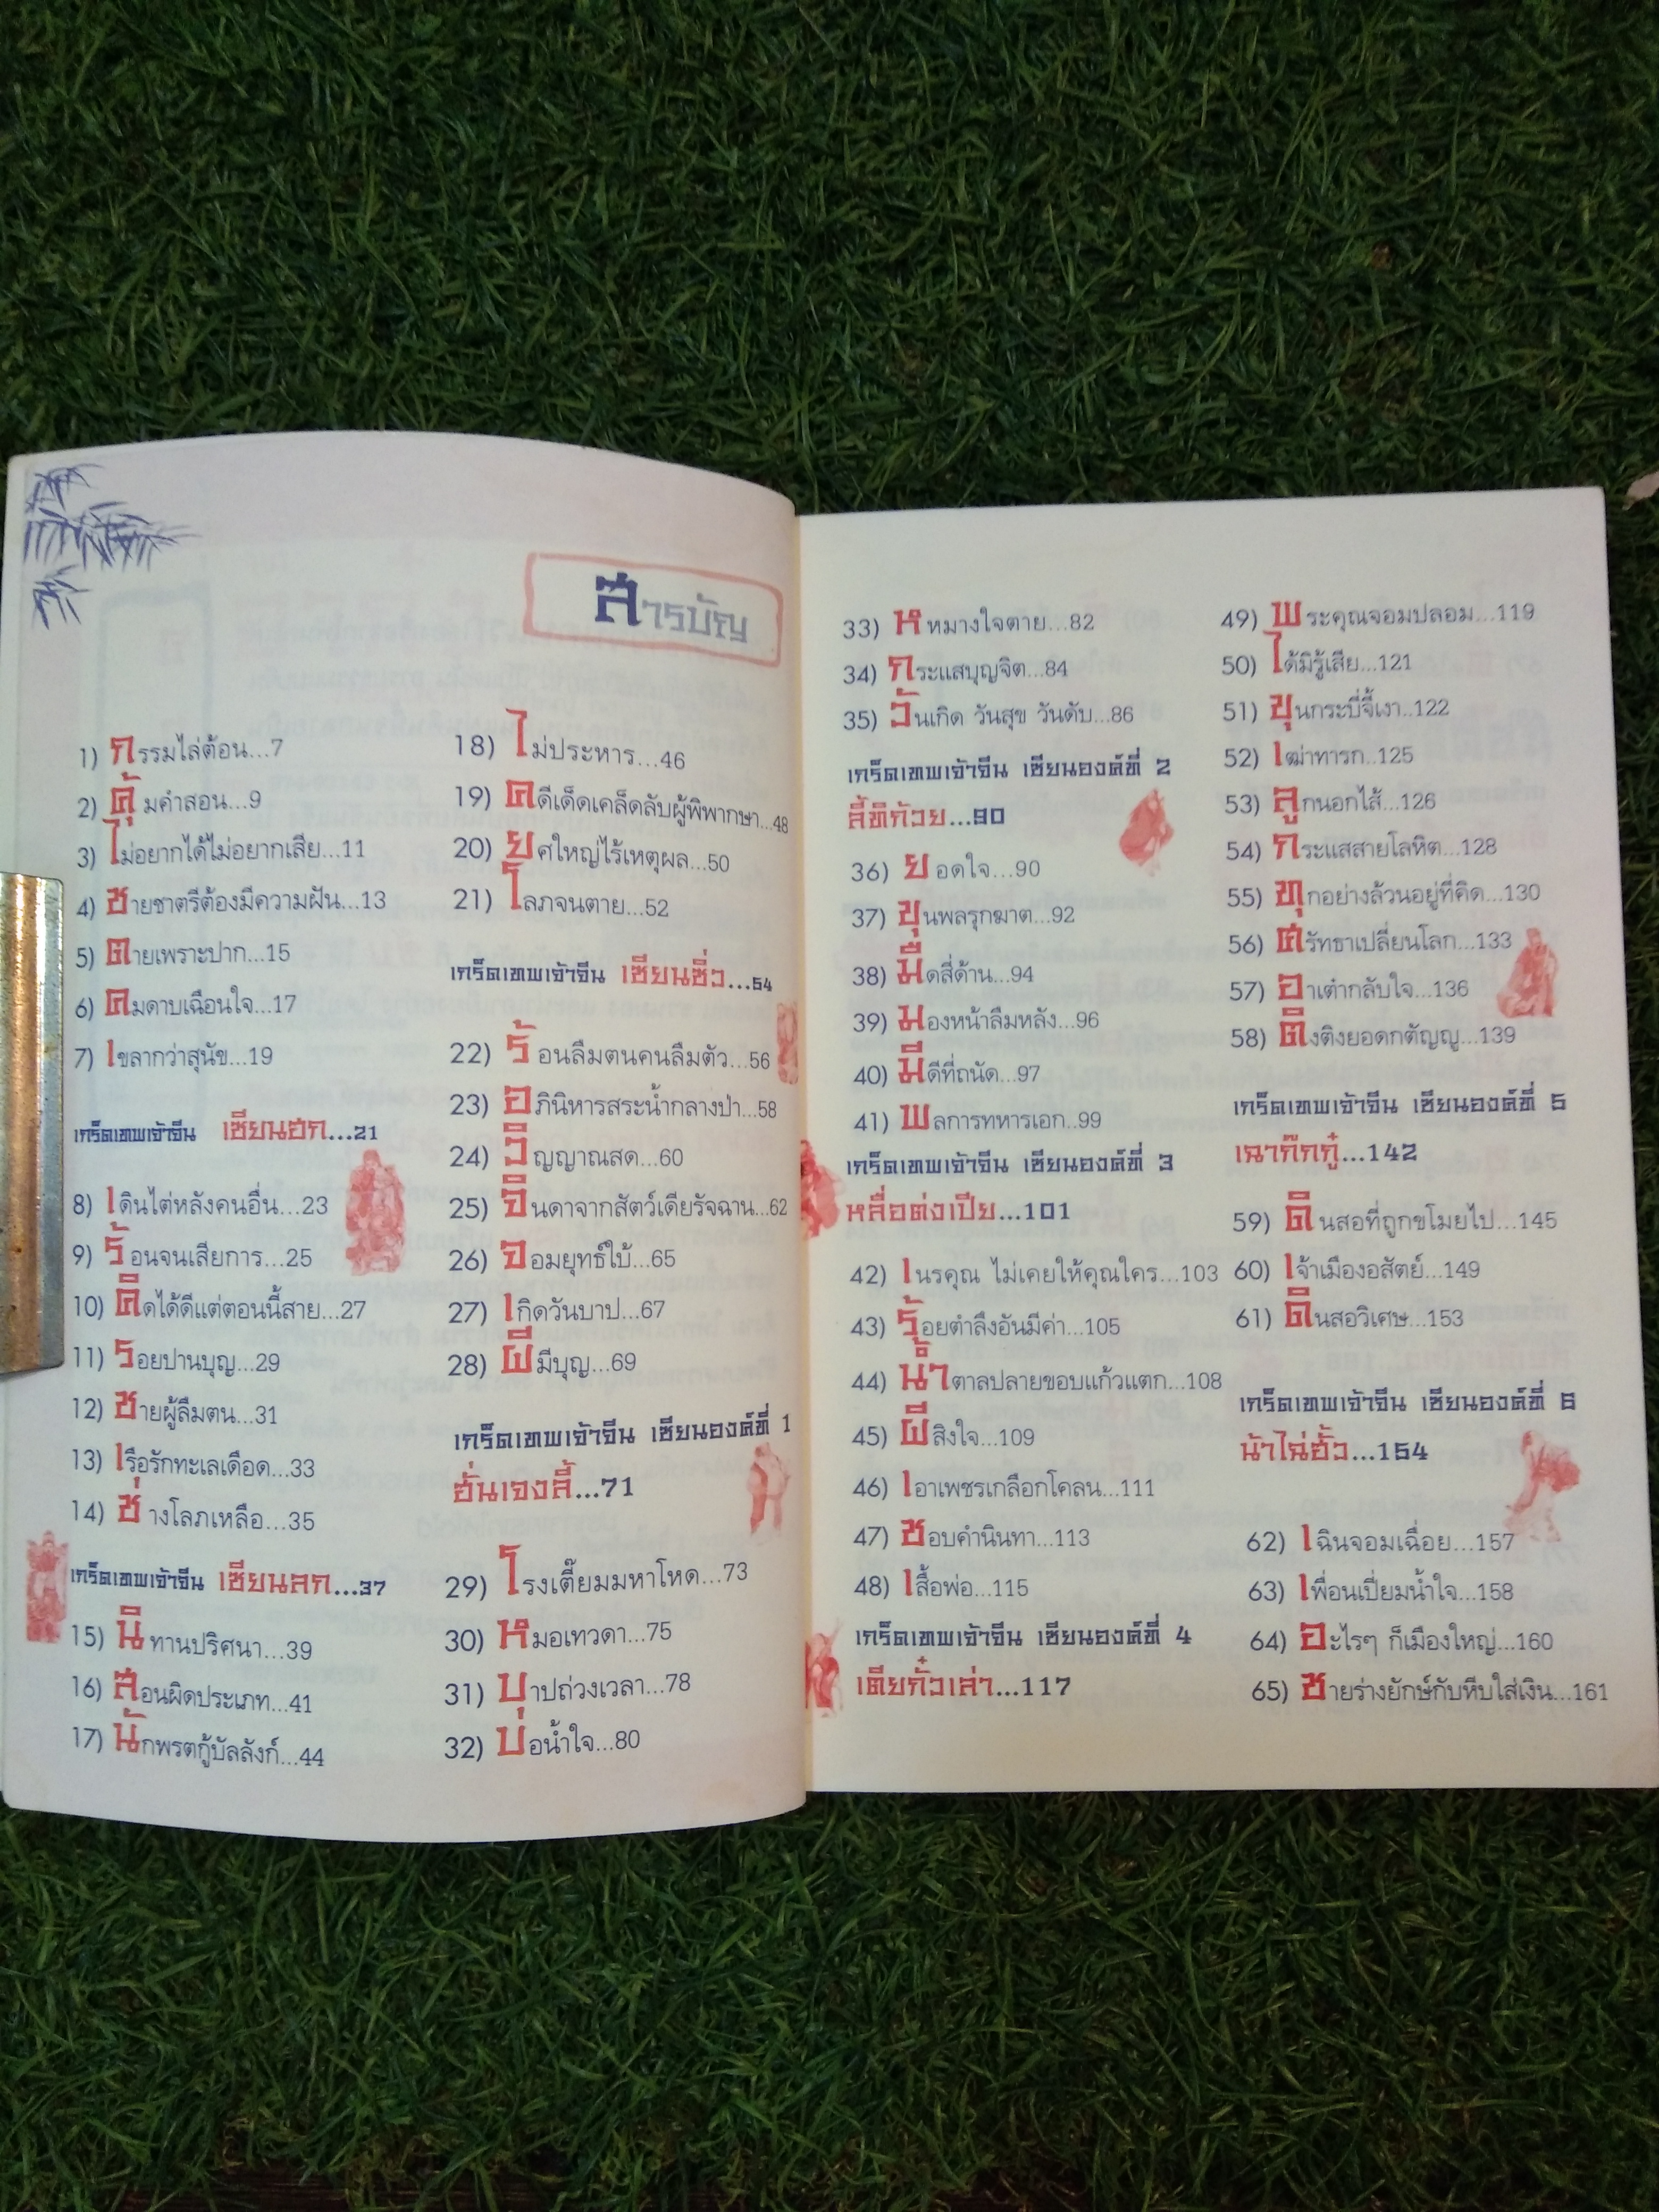 สารบัญ
1) กรรมไล่ต้อน...7
2) คุ้มคำสอน...9
3) ไม่อยากได้ไม่อยากเสีย...11
4) ชายชาตรีต้องมีความฝัน...13
5) ตายเพราะปาก...15
6) คมดาบเฉือนใจ...17
7) เขลากว่าสุนัข...19
เกร็ดเทพเจ้าจีน เซียนฮก...21
8) เดินไต่หลังคนอื่น...23
9) ร้อนจนเสียการ...25
10) คิดได้ดีแต่ตอนนี้สาย...27
11) รอยปานบุญ...29
12) ชายผู้ลืมตน...31
13) เรือรักทะเลเดือด...33
14) ช่างโลภเหลือ...35
เกร็ดเทพเจ้าจีน เซียนลก...37
15) นิทานปริศนา...39
16) สอนผิดประเภท...41
17) นักพรตกู้บัลลังก์...44
18) ไม่ประหาร...46
19) คดีเด็ดเคล็ดลับผู้พิพากษา...48
20) ยศใหญ่ไร้เหตุผล...50
21) โลภจนตาย...52
เกร็ดเทพเจ้าจีน เซียนซิ่ว...54
22) ร้อนลืมตนคนลืมตัว...56
23) อภินิหารสระน้ำกลางป่า...58
24) วิญญาณสด...60
25) จินดาจากสัตว์เดียรัจฉาน...62
26) จอมยุทธ์ใบ้...65
27) เกิดวันบาป...67
28) ผีมีบุญ...69
เกร็ดเทพเจ้าจีน เซียนองค์ที่ 1
ฮั่นเจงลี้...71
29) โรงเตี๊ยมมหาโหด...73
30) หมอเทวดา...75
31) บาปถ่วงเวลา...78
32) บ่อน้ำใจ...80
33) หหมางใจตาย...82
34) กระแสบุญจิต...84
35) วันเกิด วันสุข วันดับ...86
เกร็ดเทพเจ้าจีน เซียนองค์ที่ 2
ลี้ทิก้วย...90
36) ยอดใจ...90
37) ขุนพลรุกฆาต...92
38) มืดสี่ด้าน...94
39) มองหน้าลืมหลัง...96
40) มีดีที่ถนัด...97
41) พลการทหารเอก...99
เกร็ดเทพเจ้าจีน เซียนองค์ที่ 3
หลื่อต่งเปีย...101
42) เนรคุณ ไม่เคยให้คุณใคร...103
43) ร้อยตำลึงอันมีค่า...105
44) น้ำตาลปลายขอบแก้วแตก...108
45) ผีสิงใจ...109
46) เอาเพชรเกลือกโคลน...111
47) ชอบคำนินทา...113
48) เสื้อพ่อ...115
เกร็ดเทพเจ้าจีน เซียนองค์ที่ 4
เตียกั๋วเล่า...117
49) พระคุณจอมปลอม...119
50) ได้มิรู้เสีย...121
51) ขุนกระบี่จี้เงา..122
52) เฒ่าทารก..125
53) ลูกนอกไส้..126
54) กระแสสายโลหิต...128
55) ทุกอย่างล้วนอยู่ที่คิด...130
56) ศรัทธาเปลี่ยนโลก...133
57) อาเต๋ากลับใจ...136
58) ติงติงยอดกตัญญู...139
เกร็ดเทพเจ้าจีน เซียนองค์ที่ 5
เฉาก๊กกู๋...142
59) ดินสอที่ถูกขโมยไป...145
60) เจ้าเมืองอสัตย์...149
61) ดินสอวิเศษ...153
เกร็ดเทพเจ้าจีน เซียนองค์ที่ 6
น้าไฉ่ฮั้ว...154
62) เฉินจอมเฉื่อย...157
63) เพื่อนเปี่ยมน้ำใจ...158
64) อะไรๆ ก็เมืองใหญ่...160
65) ชายร่างยักษ์กับหีบใส่เงิน...161